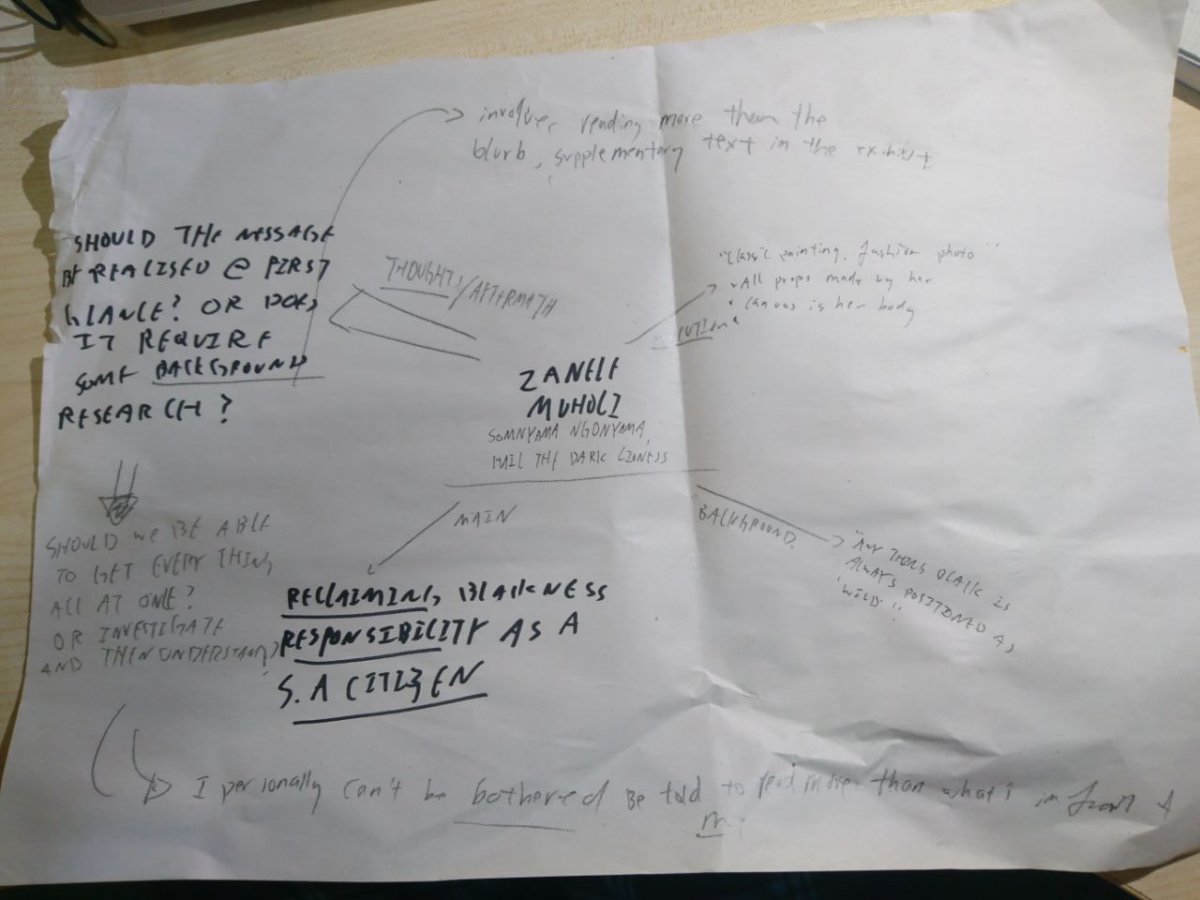 involves reading more than the
blurb, supplementary text in the exhibit
SHOULD THE MESSAGE
BE REALISED @ FIRST
GLANCE? OR DOES
IT REQUIRE
SOME BACKGROUND
RESEARCH?
THOUGHTS/AFTERMATH
"Classic painting, fashion photo"
• All props made by her
• Canvas is her body
ZANELE
MUHOLI
SOMNYAMA NGONYAMA,
HAIL THE DARK LIONESS
MAIN
BACKGROUND.
ALWAYS POSITIONED AS
'WILD'"
SHOULD WE BE ABLE
TO GET EVERYTHING
ALL AT ONE?
OR INVESTIGATE
AND THEN UNDERSTAND?
RECLAIMING BLACKNESS
RESPONSIBILITY AS A
S.A CITIZEN
I personally can't be bothered be told to read more than what's in front of
me